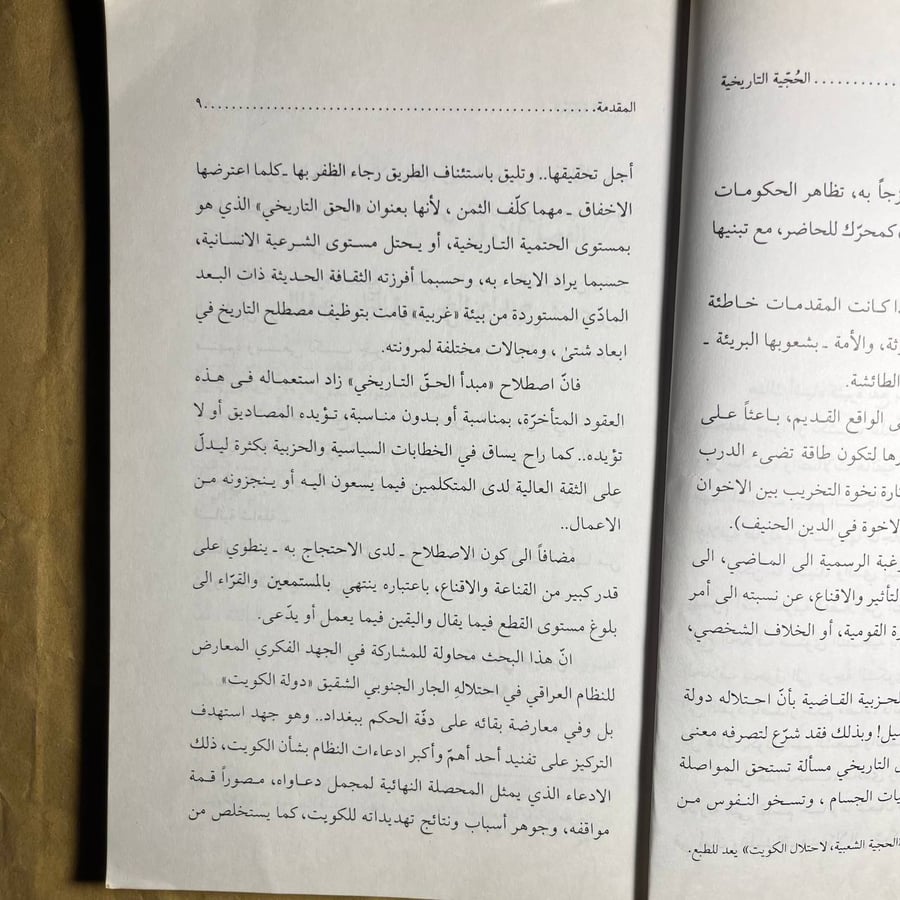 الحُجّية التاريخية
رجاً به، تظاهر الحكومات
كمحرّك للحاضر، مع تبنيها
ا كانت المقدمات خاطئة
ثة، والأمة ـ بشعوبها البريئة ـ
الطائشة.
ى الواقع القديم، باعثاً على
رها لتكون طاقة تضيء الدرب
ثارة نخوة التخريب بين الاخوان
لاخوة في الدين الحنيف).
رغبة الرسمية الى الماضي، الى
لتأثير والاقناع، عن نسبته الى أمر
رة القومية، أو الخلاف الشخصي،
لحزبية القاضية بأنّ احتلاله دولة
سيل! وبذلك فقد شرّع لتصرفه معنى
ل التاريخي مسألة تستحق المواصلة
يات الجسام، وتسخو النفوس من
«الحجية الشعبية، لاحتلال الكويت» يعد للطبع.
المقدمة ........................................ ٩
أجل تحقيقها.. وتليق باستئناف الطريق رجاء الظفر بها ـ كلما اعترضها
الاخفاق ـ مهما كلّف الثمن، لأنها بعنوان «الحق التاريخي» الذي هو
بمستوى الحتمية التاريخية، أو يحتل مستوى الشرعية الانسانية،
حسبما يراد الايحاء به، وحسبما أفرزته الثقافة الحديثة ذات البعد
المادّي المستوردة من بيئة «غربية» قامت بتوظيف مصطلح التاريخ في
ابعاد شتىٰ، ومجالات مختلفة لمرونته.
فانّ اصطلاح «مبدأ الحقّ التاريخي» زاد استعماله في هذه
العقود المتأخرّة، بمناسبة أو بدون مناسبة، تؤيده المصاديق أو لا
تؤيده.. كما راح يساق في الخطابات السياسية والحزبية بكثرة ليدلّ
على الثقة العالية لدى المتكلمين فيما يسعون اليه أو ينجزونه من
الاعمال..
مضافاً الى كون الاصطلاح ـ لدى الاحتجاج به ـ ينطوي على
قدر كبير من القناعة والاقناع، باعتباره ينتهي بالمستمعين والقرّاء الى
بلوغ مستوى القطع فيما يقال واليقين فيما يعمل أو يدّعى.
انّ هذا البحث محاولة للمشاركة في الجهد الفكري المعارض
للنظام العراقي في احتلالهِ الجار الجنوبي الشقيق «دولة الكويت»
بل وفي معارضة بقائه على دفّة الحكم ببغداد.. وهو جهد استهدف
التركيز على تفنيد أحد أهمّ وأكبر ادعاءات النظام بشأن الكويت، ذلك
الادعاء الذي يمثل المحصلة النهائية لمجمل دعاواه، مصوراً قمة
مواقفه، وجوهر أسباب ونتائج تهديداته للكويت، كما يستخلص من